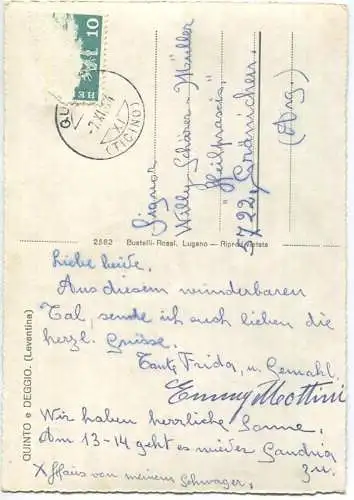 10
HE
QU
-7.XI.
XI
(TICINO)
Signor
Willy Schärer-Müller
"Heilpraxis"
5722, Gränichen.
(Arg.)
2582 Bustelli-Rossi, Lugano — Ripr. vietata
QUINTO e DEGGIO. (Leventina)
Liebe beide.
Aus diesem wunderbaren
Tal, sende ich euch lieben die
herzl. Grüsse.
Tante Frida, u. Gemahl.
Emmy Mottini
Wir haben herrliche Sonne.
Am 13-14 geht es wieder Gandria
zu.
von meinem Schwager,